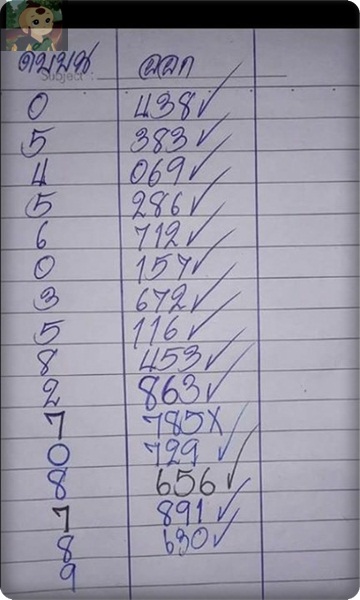 ดับบน ออก
Subject :
0 438 ✓
5 383 ✓
4 069 ✓
5 286 ✓
6 712 ✓
0 157 ✓
3 672 ✓
5 116 ✓
8 453 ✓
2 863 ✓
7 785 X
0 729 ✓
8 656 ✓
7 891 ✓
8 630 ✓
9